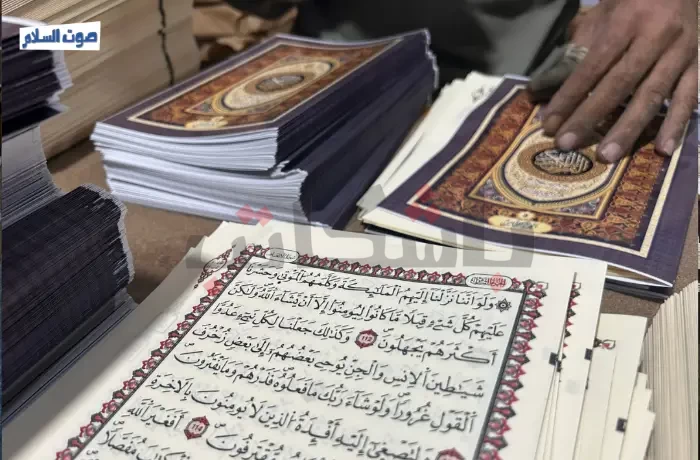 صوت السلام
وَلَوْ أَنَّنَا نَزَّلْنَا إِلَيْهِمُ الْمَلَٰئِكَةَ وَكَلَّمَهُمُ الْمَوْتَىٰ وَحَشَرْنَا
عَلَيْهِمْ كُلَّ شَيْءٍ قُبُلًا مَا كَانُوا لِيُؤْمِنُوا إِلَّا أَنْ يَشَاءَ اللَّهُ وَلَٰكِنَّ
أَكْثَرَهُمْ يَجْهَلُونَ وَكَذَٰلِكَ جَعَلْنَا لِكُلِّ نَبِيٍّ عَدُوًّا
شَيَاطِينَ الْإِنْسِ وَالْجِنِّ يُوحِي بَعْضُهُمْ إِلَىٰ بَعْضٍ زُخْرُفَ
الْقَوْلِ غُرُورًا وَلَوْ شَاءَ رَبُّكَ مَا فَعَلُوهُ فَذَرْهُمْ وَمَا يَفْتَرُونَ
وَلِتَصْغَىٰ إِلَيْهِ أَفْئِدَةُ الَّذِينَ لَا يُؤْمِنُونَ بِالْآخِرَةِ
مُقْتَرِفُونَ أَفَغَيْرَ اللَّهِ
الْكِتَابَ مُفَصَّلًا